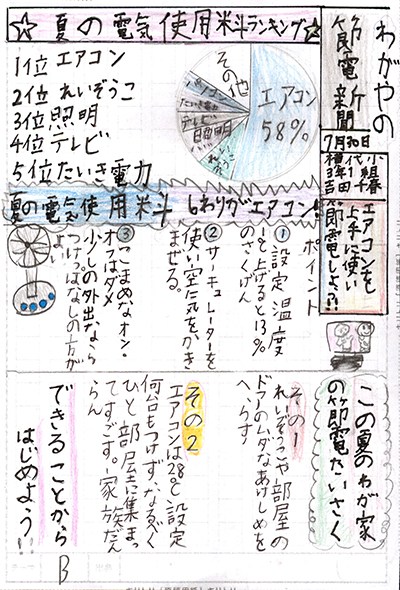 わがやの
節電新聞
7月30日
エアコンを
上手に使い
節電しよう!?
☆夏の電気使用料ランキング☆
1位 エアコン
2位 れいぞうこ
3位 照明
4位 テレビ
5位 たいき電力
エアコン
58%
照明
テレビ
たいき電力
その他
夏の電気使用料 6わりがエアコン!
ポイント
① 設定温度
1℃上げると13%
のさくげん
② サーキュレーターを
使い空気をかき
まぜる。
③ こまめなオン・
オフはダメ
少しの外出なら
つけっぱなしの方が
よい
この夏のわが家
の節電たいさく
その1
れいぞうこや部屋の
ドアのムダなあけしめを
へらす
その2
エアコンは28℃設定
何台もつけず、なるべく
ひと部屋に集まっ
てすごす。一家族だん
らん
できることから
はじめよう!!
B